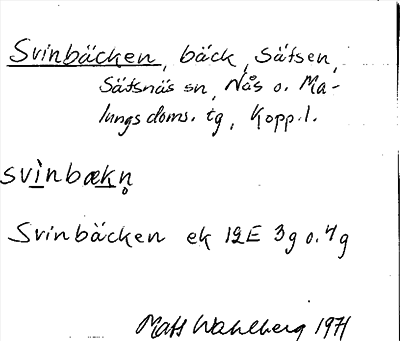 Svinbäcken, bäck, Sätsen,
Sätsnäs sn, Nås o. Ma-
lungs doms. tg, Kopp. l.
svìnbækn̥
Svinbäcken ek 12E 3g o. 4g
Mats Wahlberg 1971